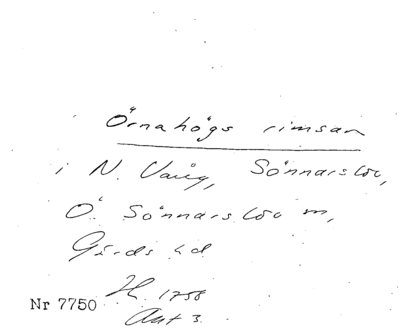 Örnahögs rimsan
i N. Vång, Sönnarslöv,
Ö Sönnarslöv m,
Gärds hd
H. 1758
Akt 3.
Nr 7750